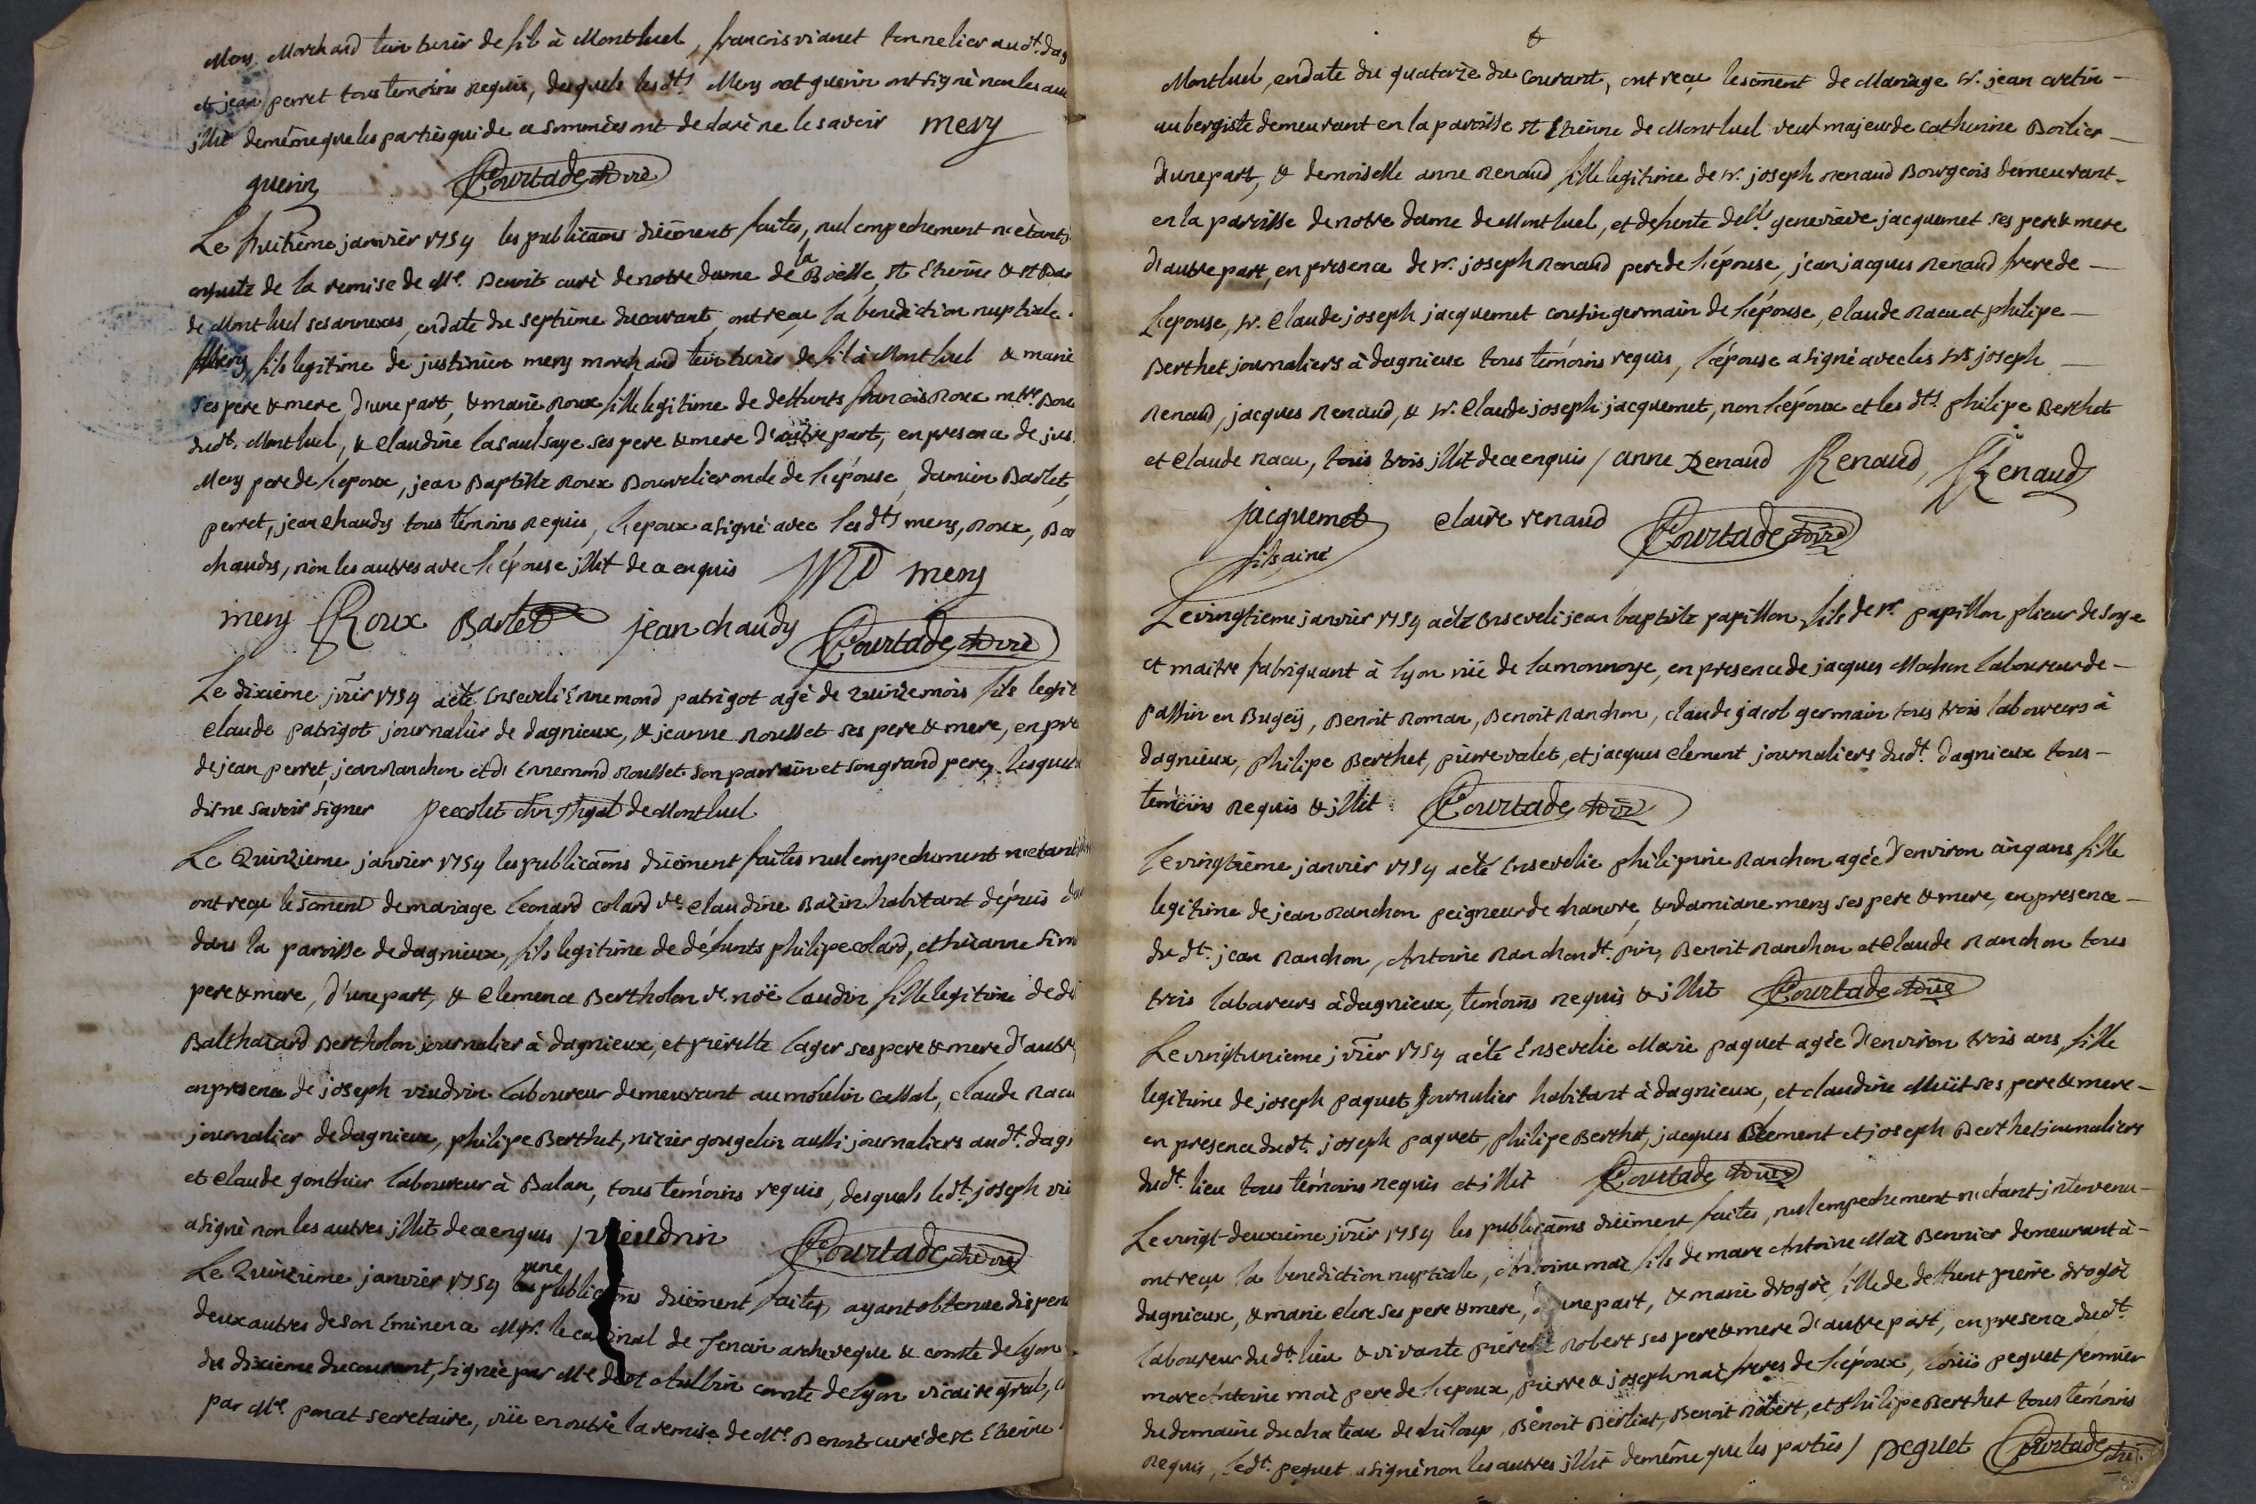 Mery Marchand teinturier de fil à Montluel, francois vianet tonnelier aud.t dag
et jean perret tous temoins requis, desquels lesd.ts Mery et guerin ont signé non les au
illit. de même que les parties qui de ce sommées ont declaré ne le savoir mery
guerin Courtade curé
Le huitième janvier 1754 les publicãons düement faites, nul empechement n'étant
ensuite de la remise de M.e Benoit curé de notre dame de la Boësse, st Etienne & st
de Montluel ses annexes, en date du septième du courant, ont reçu la benediction nuptiale
Mery, fils legitime de justinien mery marchand teinturier de fil à Montluel & marie
ses pere & mere, d'une part, & marie Roux fille legitime de deffunts francois Roux m.tre Bour
dud.t Montluel, & Claudine lasaulsaye ses pere & mere d'autre part, en presence de jus
Mery pere de l'epoux, jean Baptiste Roux Bourrelier oncle de l'épouse, damien Barlet,
perret, jean chaudy tous témoins requis, l'epoux a signé avec lesd.ts mery, Roux, Bar
chaudy, non les autres avec l'épouse illit. de ce enquis mery
mery Roux Barlet jean chaudy Courtade curé
Le dixième jvier 1754 a été Enseveli Ennemond patrigot agé de quinze mois fils legit
Claude patrigot journalier de dagnieux, & jeanne Rousset ses pere & mere, en pre
de jean perret, jean Ranchon et d'Ennemond Rousset son parrain et son grand pere, lesquels
dit ne savoir signer pecolet de Montluel
Le Quinzieme janvier 1754 les publicãons düement faites nul empechement n'etant
ont reçu le sãment de mariage Leonard Colard v.e Claudine Bazin habitant dépuis
dans la paroisse de dagnieux, fils legitime de défunts philipe colard, et
pere & mere, d'une part, & Clemence Bertholon v.e noë Laudin fille legitime de
Balthazard Bertholon journalier à dagnieux, et pierrette Lager ses pere & mere d'autre
en presence de joseph viudrin laboureur demeurant au moulin cassal, Claude Racu
journalier de dagnieux, philipe Berthet, nizier gougelin aussi journaliers aud.t dagn
et Claude gonthier laboureur à Balan, tous temoins requis, desquels led.t joseph viu
a signé non les autres illit. de ce enquis / Courtade curé
Le Quinzième janvier 1754 une publicãons düement faite, ayant obtenue dispen
deux autres de son Eminence Mgr. le cardinal de Tencin archeveque & comte de Lyon
du dixième du courant, signée par M.e de st Aulbin comte de Lyon vicaire gñral,
par M.e poncet secretaire, vüe en outre la remise de M.e Benoit curé de st Etienne
&
Montluel, en date du quatorze du courant, ont reçu le sãment de Mariage s.r jean cretin
aubergiste demeurant en la paroisse st Etienne de Montluel veuf majeur de catherine Boilier
d'une part, & demoiselle anne Renaud fille legitime de s.r joseph Renaud Bourgeois demeurant
en la paroisse de notre dame de Montluel, et defunte d.lle genevieve jacquemet ses pere & mere
d'autre part, en presence de s.r joseph Renaud pere de l'épouse, jean jacques Renaud frere de
L'epouse, s.r Claude joseph jacquemet cousin germain de l'épouse, Claude Racu et philipe
Berthet journaliers à dagnieux tous témoins requis, l'épouse a signé avec les srs joseph
Renaud, jacques Renaud, & s.r Claude joseph jacquemet, non l'époux et les d.ts philipe Berthet
et Claude Racu, tous trois illit. de ce enquis / anne Renaud Renaud, Renaud
jacquemet fils ainé claire renaud Courtade curé
Le vingtieme janvier 1754 a été Enseveli jean baptiste papillon fils de s.r papillon plieur de soye
et maitre fabriquant à lyon rüe de la monnoye, en presence de jacques Mochon laboureur de
passin en Bugeÿ, Benoit Roman, Benoit Ranchon, claude jacol germain tous trois laboureurs à
dagnieux, philipe Berthet, pierre valet, et jacques Clement journaliers dud.t dagnieux tous
temoins requis & illit. Courtade curé
Le vingtième janvier 1754 a été Ensevelie philipine Ranchon agée d'environ cinq ans, fille
legitime de jean Ranchon peigneur de chanvre, & damiane mery ses pere & mere, en presence
du d.t jean Ranchon, Antoine Ranchon d.t pin, Benoit Ranchon et Claude Ranchon tous
trois laboureurs à dagnieux, temoins requis & illit. Courtade curé
Le vingtunieme jvier 1754 a été Ensevelie Marie paquet agée d'environ trois ans, fille
legitime de joseph paquet journalier habitant à dagnieux, et claudine Muit ses pere & mere
en presence dud.t joseph paquet, philipe Berthet, jacques Clement et joseph Berthet journaliers
dud.t lieu tous témoins requis et illit. Courtade curé
Le vingt-deuxième jvier 1754 les publicãons düement faites, nul empechement n'etant intervenu
ont reçu la benediction nuptiale, Antoine maz fils de marc Antoine Maz Bennier demeurant à
dagnieux, & marie clere ses pere & mere, d'une part, & marie drogoz, fille de deffunt pierre drogoz
laboureur dud.t lieu & vivante pierette Robert ses pere & mere d'autre part, en presence dud.t
marc Antoine maz pere de l'epoux, pierre & joseph maz freres de l'époux, Loüis peguet fermier
du domaine du chateau de chiloup, Benoit Berliat, Benoit Robert, et philipe Berthet tous témoins
requis, led.t peguet a signé non les autres illit. de même que les parties / peguet Courtade curé